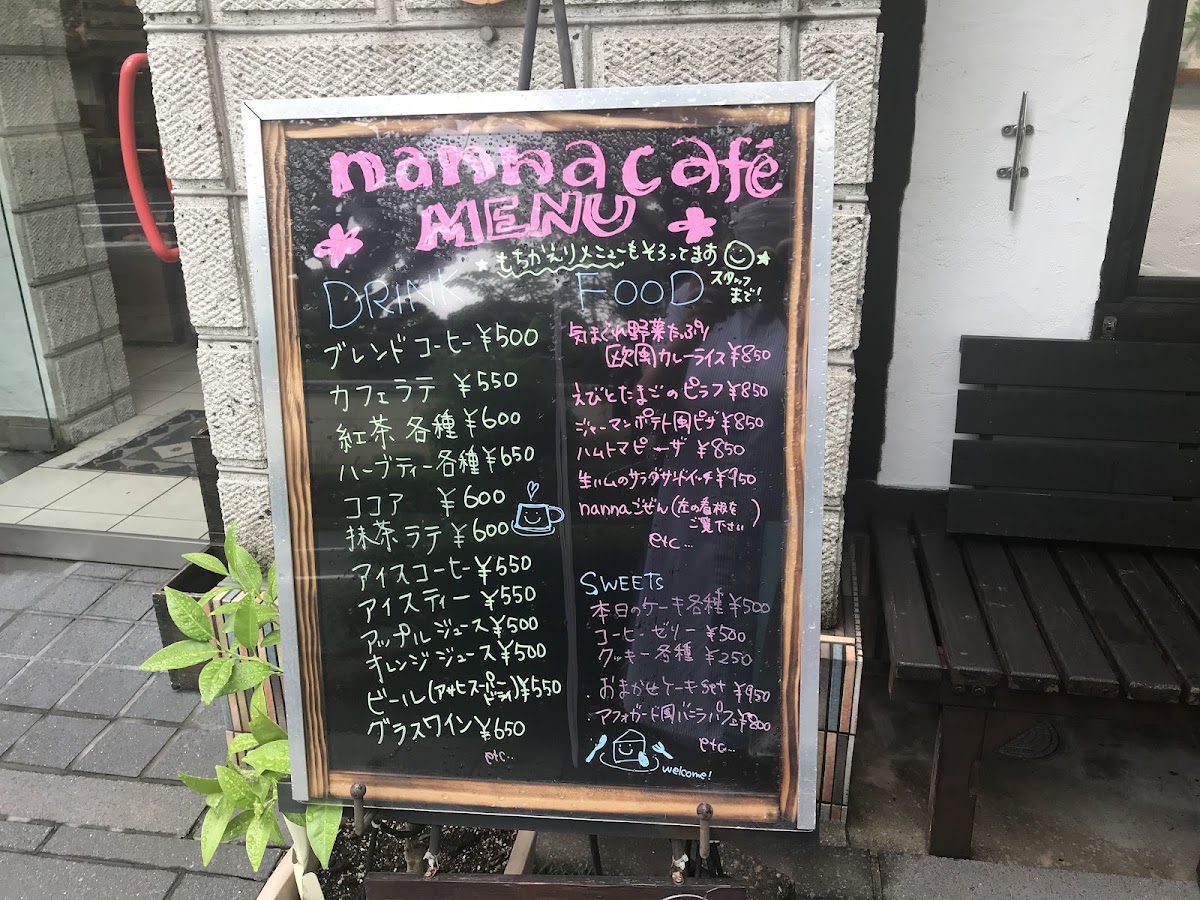 nanna café
MENU
もちかえりメニューもそろってます
スタッフ
まで!
DRINK
ブレンドコーヒー ¥500
カフェラテ ¥550
紅茶 各種 ¥600
ハーブティー各種 ¥650
ココア ¥600
抹茶ラテ ¥600
アイスコーヒー ¥550
アイスティー ¥550
アップルジュース ¥500
オレンジジュース ¥500
ビール(アサヒスーパードライ) ¥550
グラスワイン ¥650
etc...
FOOD
気まぐれ野菜たっぷり
欧風カレーライス ¥850
えびとたまごのピラフ ¥850
ジャーマンポテト風ピザ ¥850
ハムトマピーザ ¥850
生ハムのサラダサンドイッチ ¥950
nannaごぜん(左の看板を
ご覧下さい)
etc...
SWEETS
本日のケーキ各種 ¥500
コーヒーゼリー ¥500
クッキー各種 ¥250
おまかせケーキset ¥950
アフォガード風バニラパフェ ¥800
etc...
welcome!